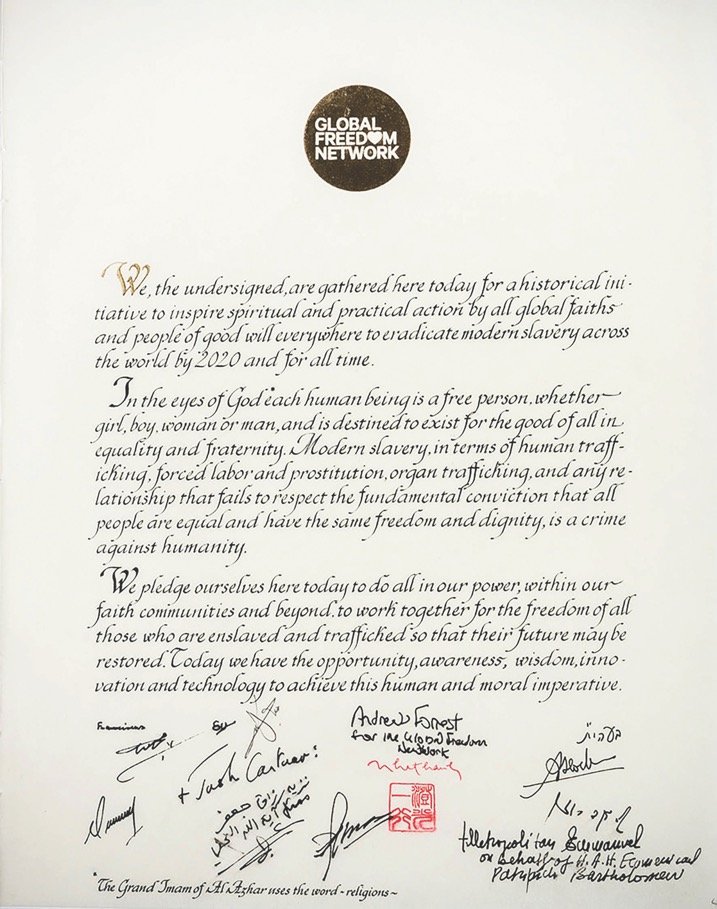 GLOBAL
FREEDOM
NETWORK
We, the undersigned, are gathered here today for a historical ini-
tiative to inspire spiritual and practical action by all global faiths
and people of good will everywhere to eradicate modern slavery across
the world by 2020 and for all time.
In the eyes of God* each human being is a free person, whether
girl, boy, woman or man, and is destined to exist for the good of all in
equality and fraternity. Modern slavery, in terms of human traff-
icking, forced labor and prostitution, organ trafficking, and any re-
lationship that fails to respect the fundamental conviction that all
people are equal and have the same freedom and dignity, is a crime
against humanity.
We pledge ourselves here today to do all in our power, within our
faith communities and beyond, to work together for the freedom of all
those who are enslaved and trafficked so that their future may be
restored. Today we have the opportunity, awareness, wisdom, inno-
vation and technology to achieve this human and moral imperative.
Franciscus
Andrew Forrest
for the Global Freedom
Network
+ Justin Cantuar:
一行
Metropolitan Emmanuel
on behalf of H.A.H. Ecumenical
Patriarch Bartholomew
*The Grand Imam of Al Azhar uses the word ~ religions ~